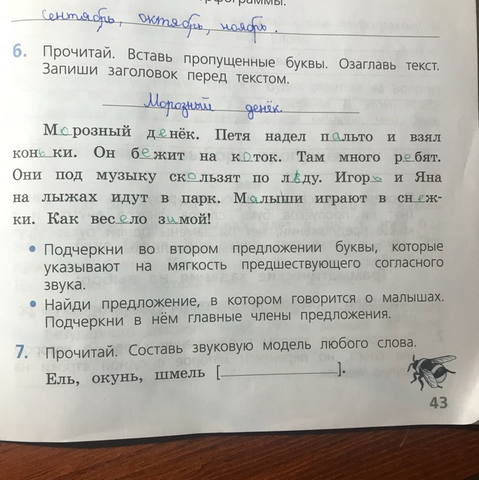 сентябрь, октябрь, ноябрь.
6. Прочитай. Вставь пропущенные буквы. Озаглавь текст.
Запиши заголовок перед текстом.
Морозный денёк.
Морозный денёк. Петя надел пальто и взял
коньки. Он бежит на каток. Там много ребят.
Они под музыку скользят по льду. Игорь и Яна
на лыжах идут в парк. Малыши играют в снеж-
ки. Как весело зимой!
• Подчеркни во втором предложении буквы, которые
указывают на мягкость предшествующего согласного
звука.
• Найди предложение, в котором говорится о малышах.
Подчеркни в нём главные члены предложения.
7. Прочитай. Составь звуковую модель любого слова.
Ель, окунь, шмель [ ].
43